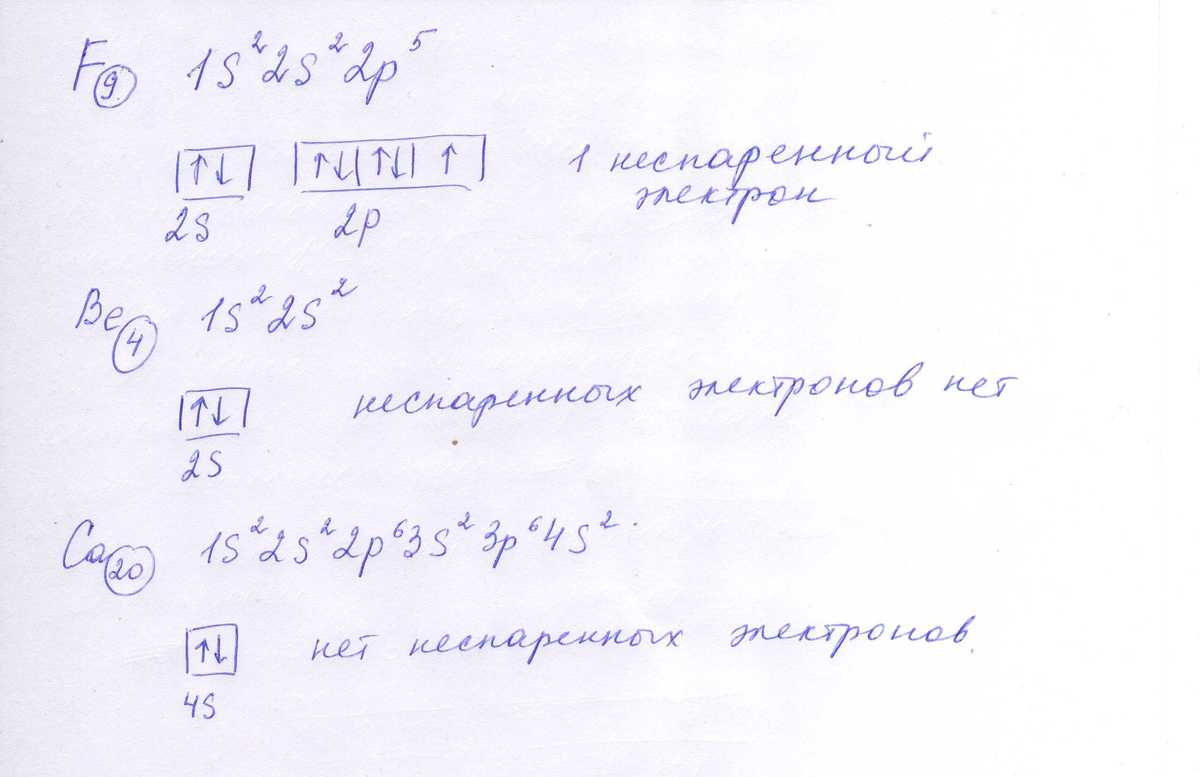 F 9 1s² 2s² 2p⁵
↑↓ ↑↓ ↑↓ ↑ 1 неспаренный
электрон
2s 2p
Be 4 1s² 2s²
↑↓ неспаренных электронов нет
2s
Ca 20 1s² 2s² 2p⁶ 3s² 3p⁶ 4s².
↑↓ нет неспаренных электронов.
4s